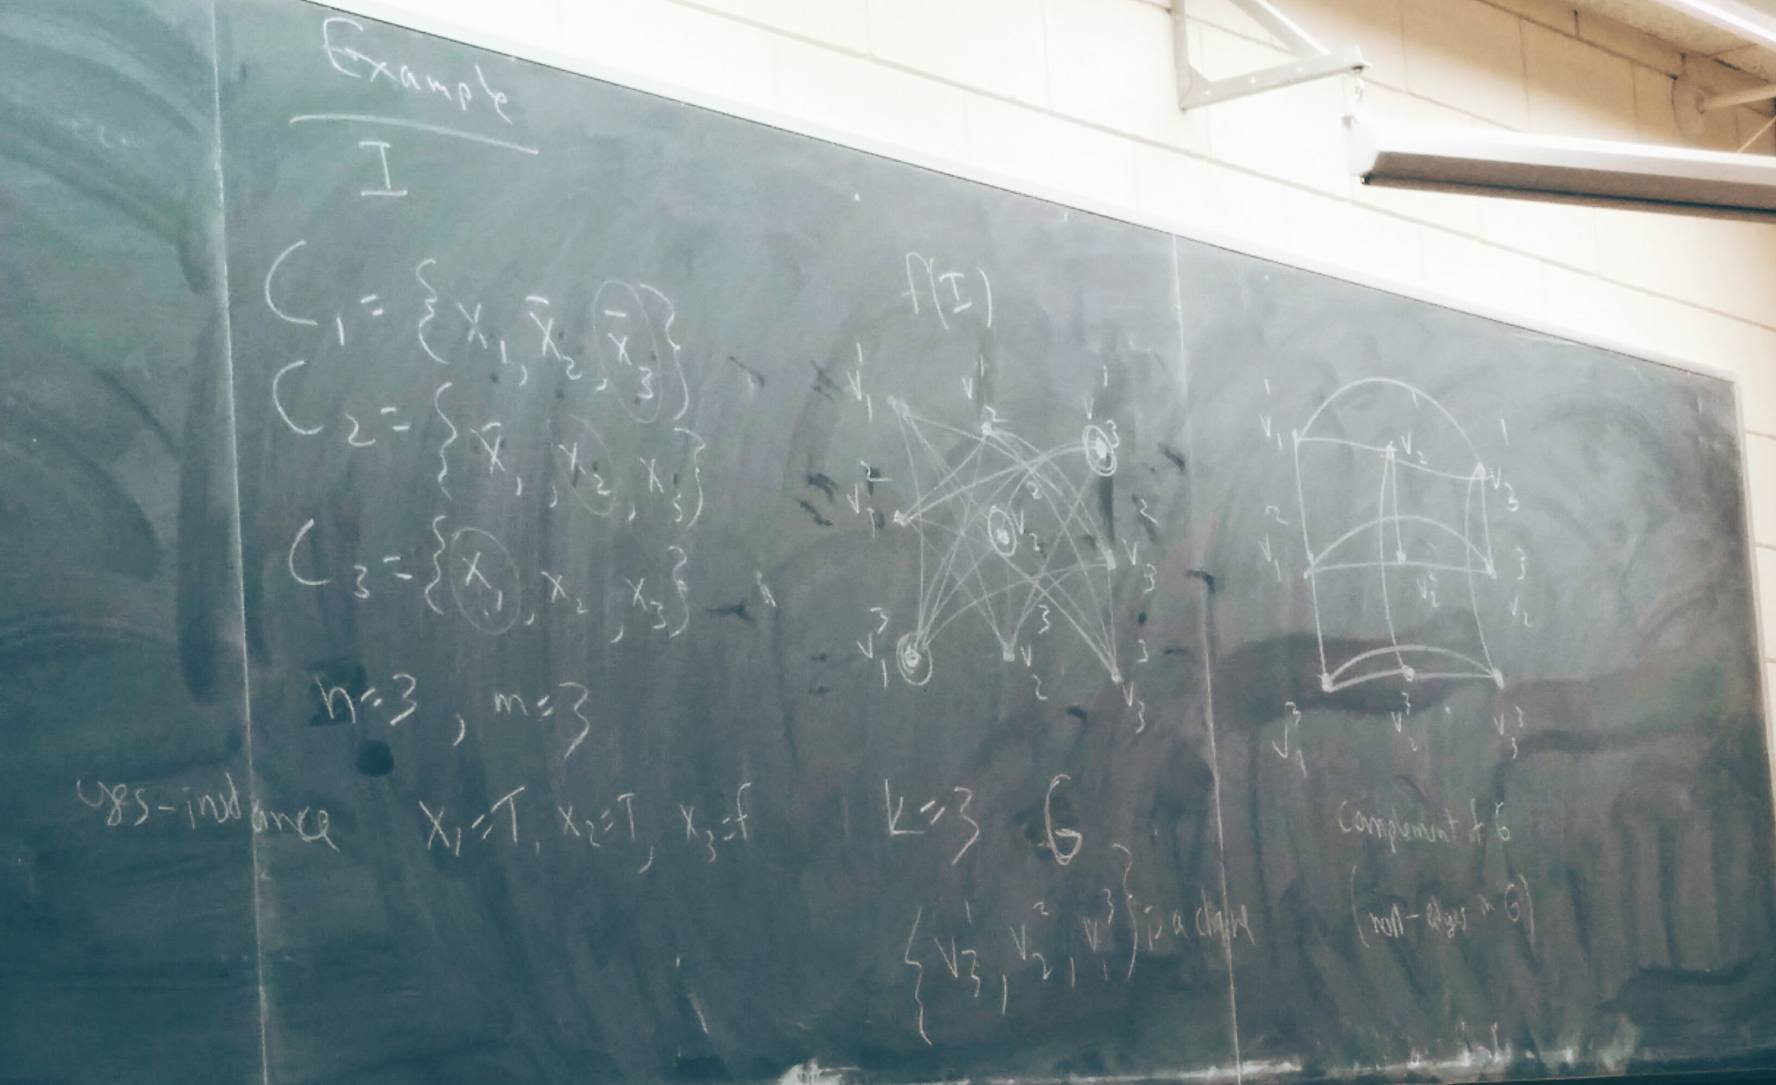 Example
I
C₁ = {x₁, x̄₂, x̄₃}
C₂ = {x̄₁, x₂, x₃}
C₃ = {x₁, x₂, x₃}
n=3, m=3
yes-instance x₁=T, x₂=T, x₃=f
f(I)
v₁¹ v₂¹ v₃¹
v₁² v₂² v₃²
v₁³ v₂³ v₃³
k=3 G
{v₃¹, v₂², v₁³} is a clique
v₁¹ v₂¹ v₃¹
v₁² v₂² v₂³
v₁³ v₂³ v₃³
complement of G
(non-edges in G)